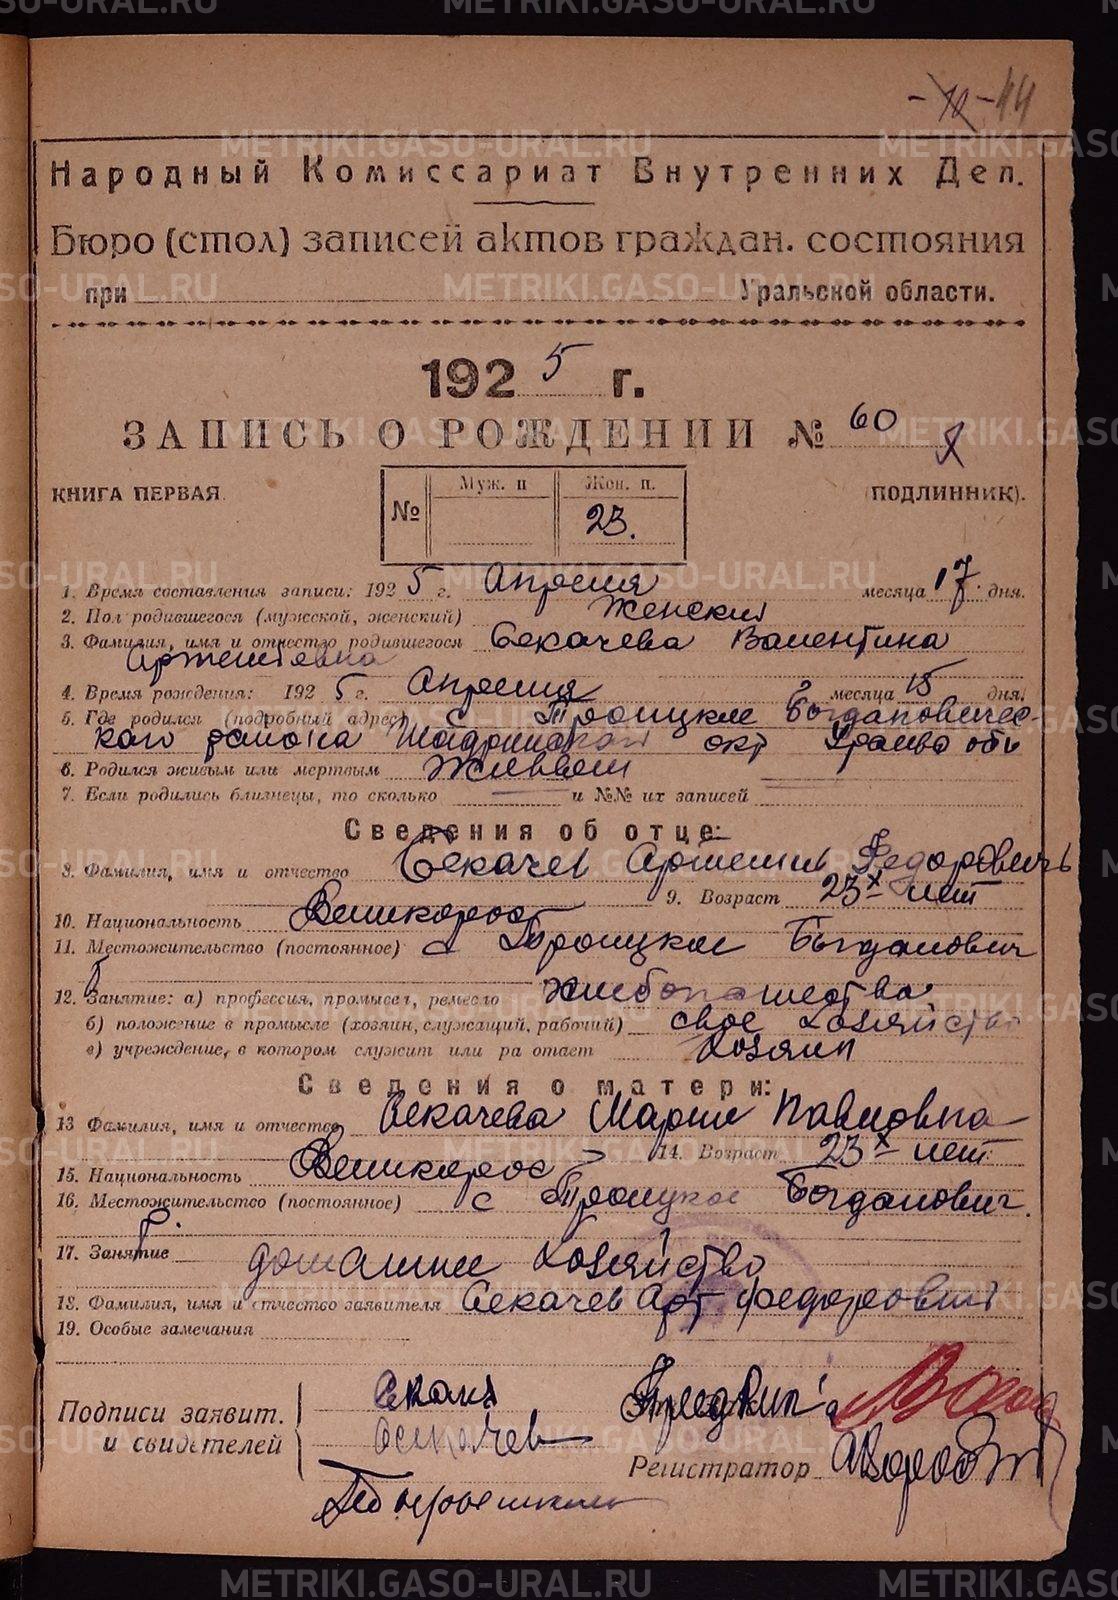 -10- 44
Народный Комиссариат Внутренних Дел.
Бюро (стол) записей актов граждан. состояния
при Уральской области.
1925 г.
ЗАПИСЬ О РОЖДЕНИИ № 60
КНИГА ПЕРВАЯ (ПОДЛИННИК).
№ Муж. п Жен. п.
23.
1. Время составления записи: 1925 г. Апреля месяца 17 дня.
2. Пол родившегося (мужской, женский) Женский
3. Фамилия, имя и отчество родившегося Секачева Валентина
Артемьевна
4. Время рождения: 1925 г. Апреля месяца 15 дня.
5. Где родился (подробный адрес) С Троицкое Богдановичес-
кого района Шадринской окт Уралво обл
6. Родился живым или мертвым Живым
7. Если родились близнецы, то сколько и №№ их записей
Сведения об отце:
8. Фамилия, имя и отчество Секачев Артемий Федоровичь
9. Возраст 23х лет
10. Национальность Великорос
11. Местожительство (постоянное) С Троицкое Богданович
12. Занятие: а) профессия, промысел, ремесло хлебопашества
б) положение в промысле (хозяин, служащий, рабочий) свое Хозяйство
в) учреждение, в котором служит или ра отает Хозяин
Сведения о матери:
13 Фамилия, имя и отчество Секачева Марии Павловна
14. Возраст 23х лет
15. Национальность Великорос
16. Местожительство (постоянное) с Троицкое Богданович.
р.
17. Занятие домашние Хозяйство
18. Фамилия, имя и отчество заявителя Секачев Арт Федорович
19. Особые замечания
Подписи заявит.
и свидетелей
Секачев
Регистратор
METRIKI.GASO-URAL.RU